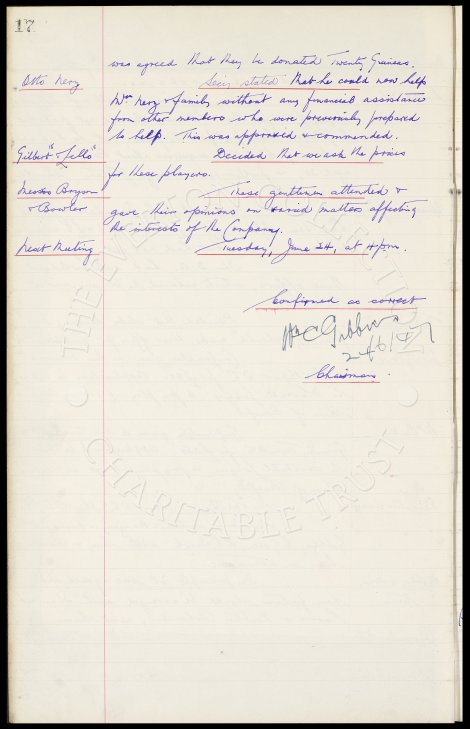 17
was agreed that they be donated Twenty Guineas.
Otto Nerz
Secy stated that he could now help
Mrs Nerz & family without any financial assistance
from other members who were previously prepared
to help. This was approved & commended.
Gilbert "& Lello"
Decided that we ask the prices
for these players.
Messrs
& Bowler
These gentlemen attended &
gave their opinions on varied matters affecting
the interests of the Company.
Next Meeting
Tuesday, June 24, at 4pm.
Confirmed as correct
Wm C Gibbins
24/6/47
Chairman.
THE EVERTON COLLECTION
CHARITABLE TRUST